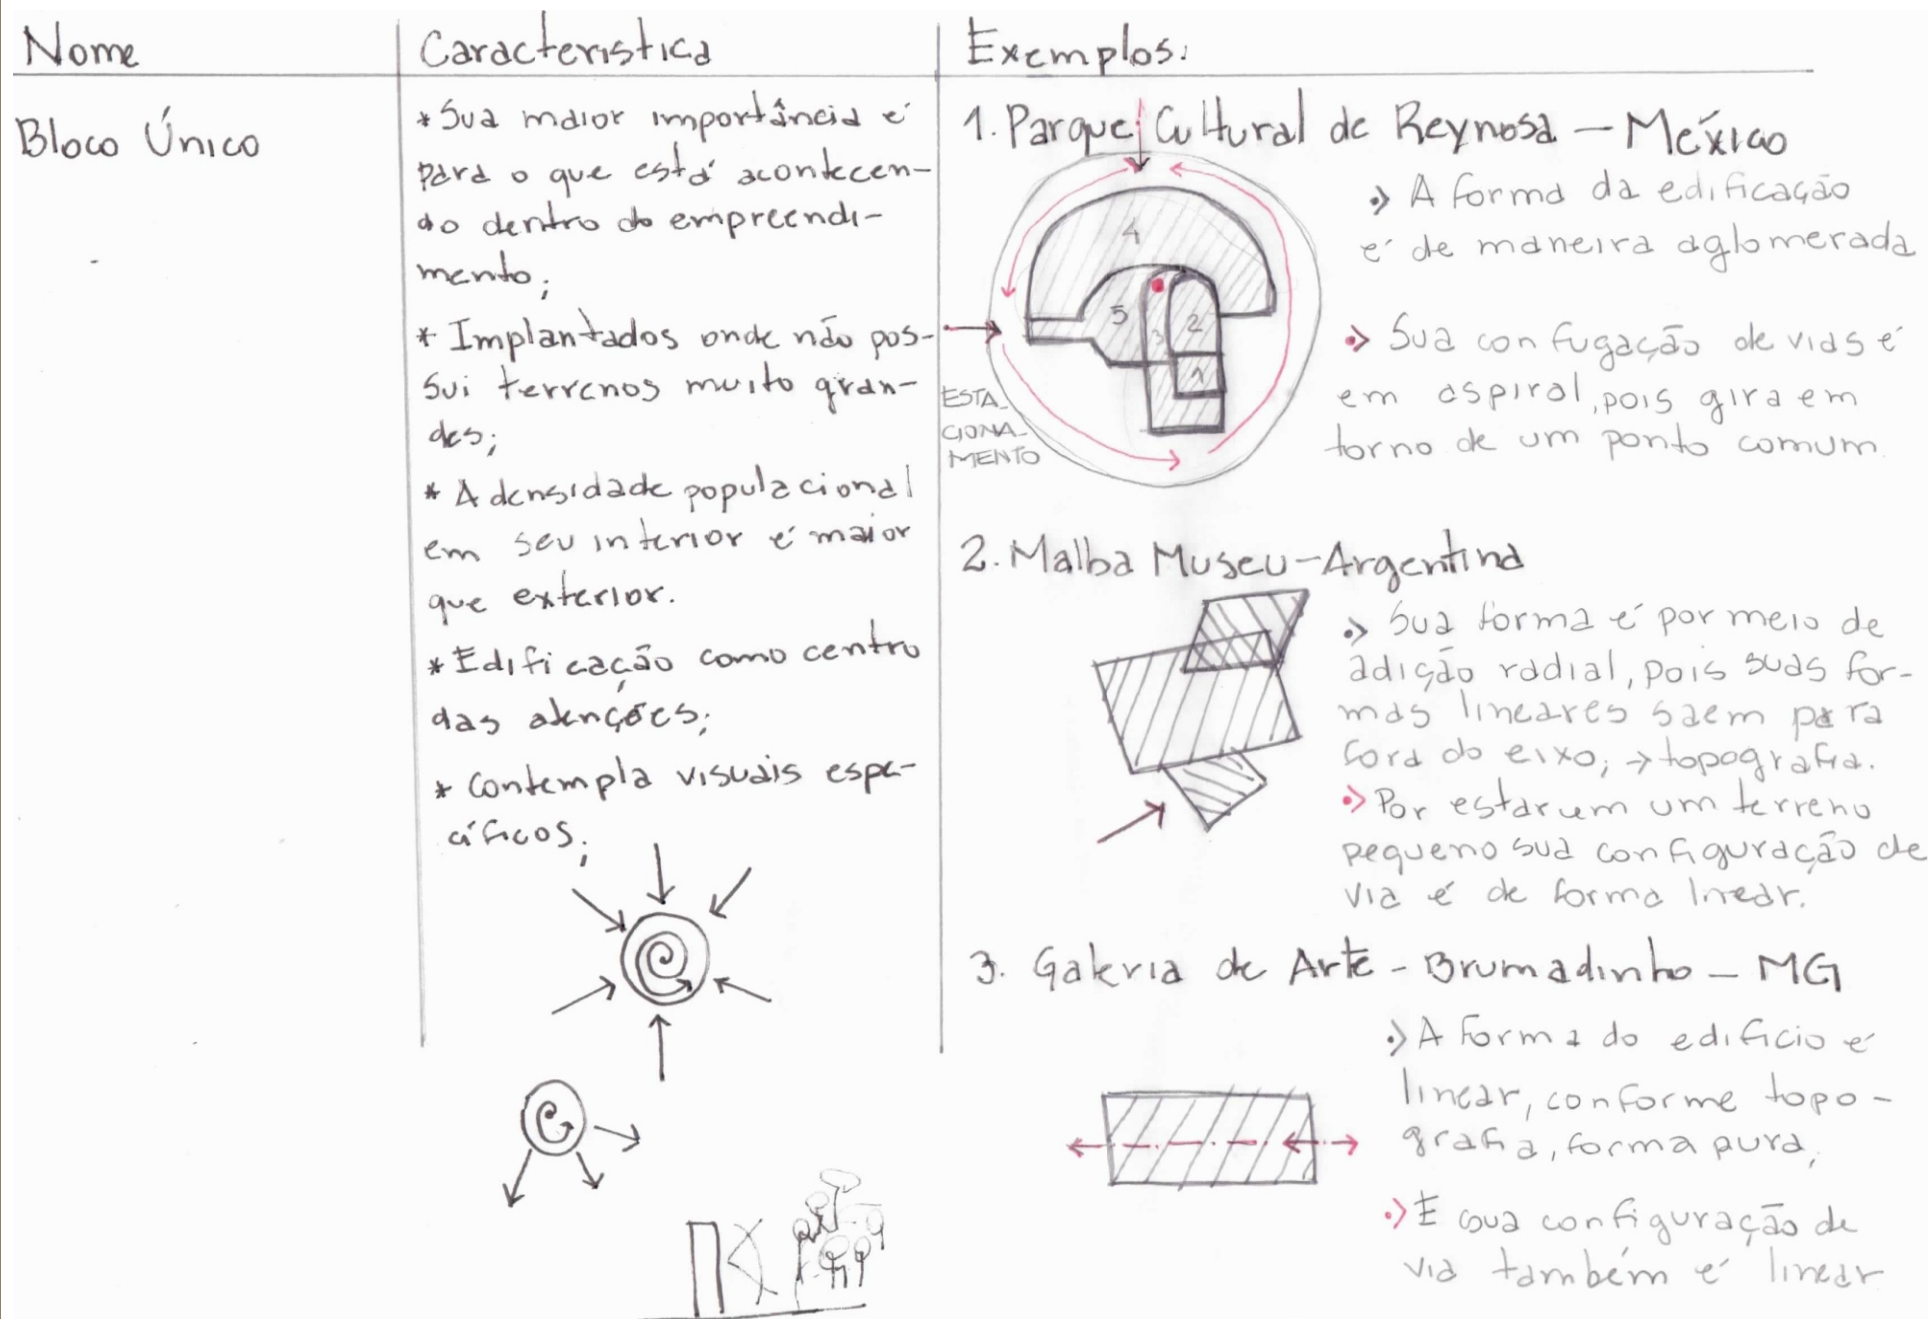 Nome
Caracteristica
Exemplos:
Bloco Único
* Sua maior importância é
para o que está acontecen-
do dentro do empreendi-
mento;
* Implantados onde não pos-
sui terrenos muito gran-
des;
* A densidade populacional
em seu interior é maior
que exterior.
* Edificação como centro
das atenções;
* Contempla visuais espe-
cíficos;
1. Parque Cultural de Reynosa – México
4
5
3
2
1
ESTA-
CIONA-
MENTO
A forma da edificação
é de maneira aglomerada
Sua confugação de vias é
em aspiral, pois gira em
torno de um ponto comum.
2. Malba Museu - Argentina
Sua forma é por meio de
adição radial, pois suas for-
mas lineares saem para
fora do eixo; → topografia.
Por estar um terreno
pequeno sua configuração de
via é de forma linear.
3. Galeria de Arte - Brumadinho - MG
A forma do edificio é
linear, conforme topo-
grafia, forma pura,
E sua configuração de
via também é linear